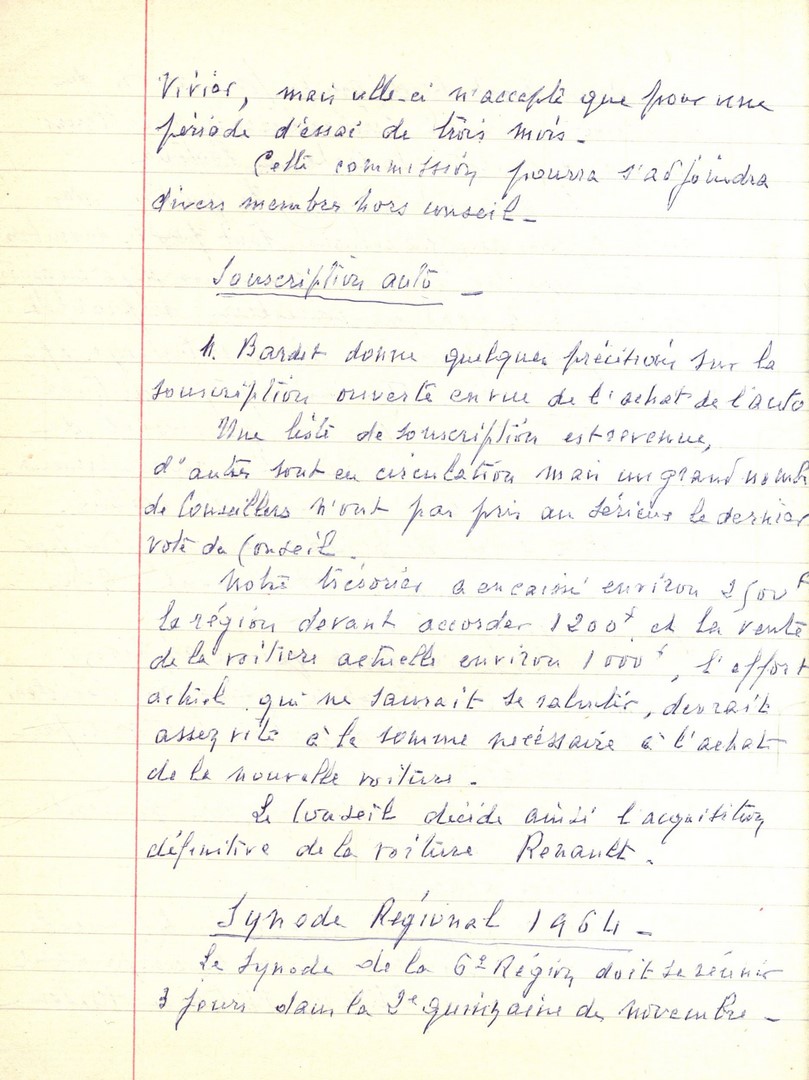 Vivier, mais celle-ci n'accepte que pour une
période d'éssai de trois mois -
Cette commission pourra s'adjoindra
divers membres hors conseil -
Souscription auto -
M. Bardet donne quelques précisions sur la
souscription ouverte en vue de l'achat de l'auto
Une liste de souscription est revenue,
d'autres sont en circulation mais un grand nomb
de Conseillers n'ont pas pris au sérieux le dernier
vote du Conseil.
Notre trésorier a encaissé environ 2500 F
la région devant accorder 1200 F et la vente
de la voiture actuelle environ 1000 F, l'effort
actuel qui ne saurait se ralentir, devrait
assez vite à la somme necéssaire à l'achat
de la nouvelle voiture -
Le Conseil décide ainsi l'acquisition
définitive de la voiture Renault.
Synode Régional 1964 -
Le Synode de la 6e Région doit se réunir
3 jours dans la 2e quinzaine de novembre -